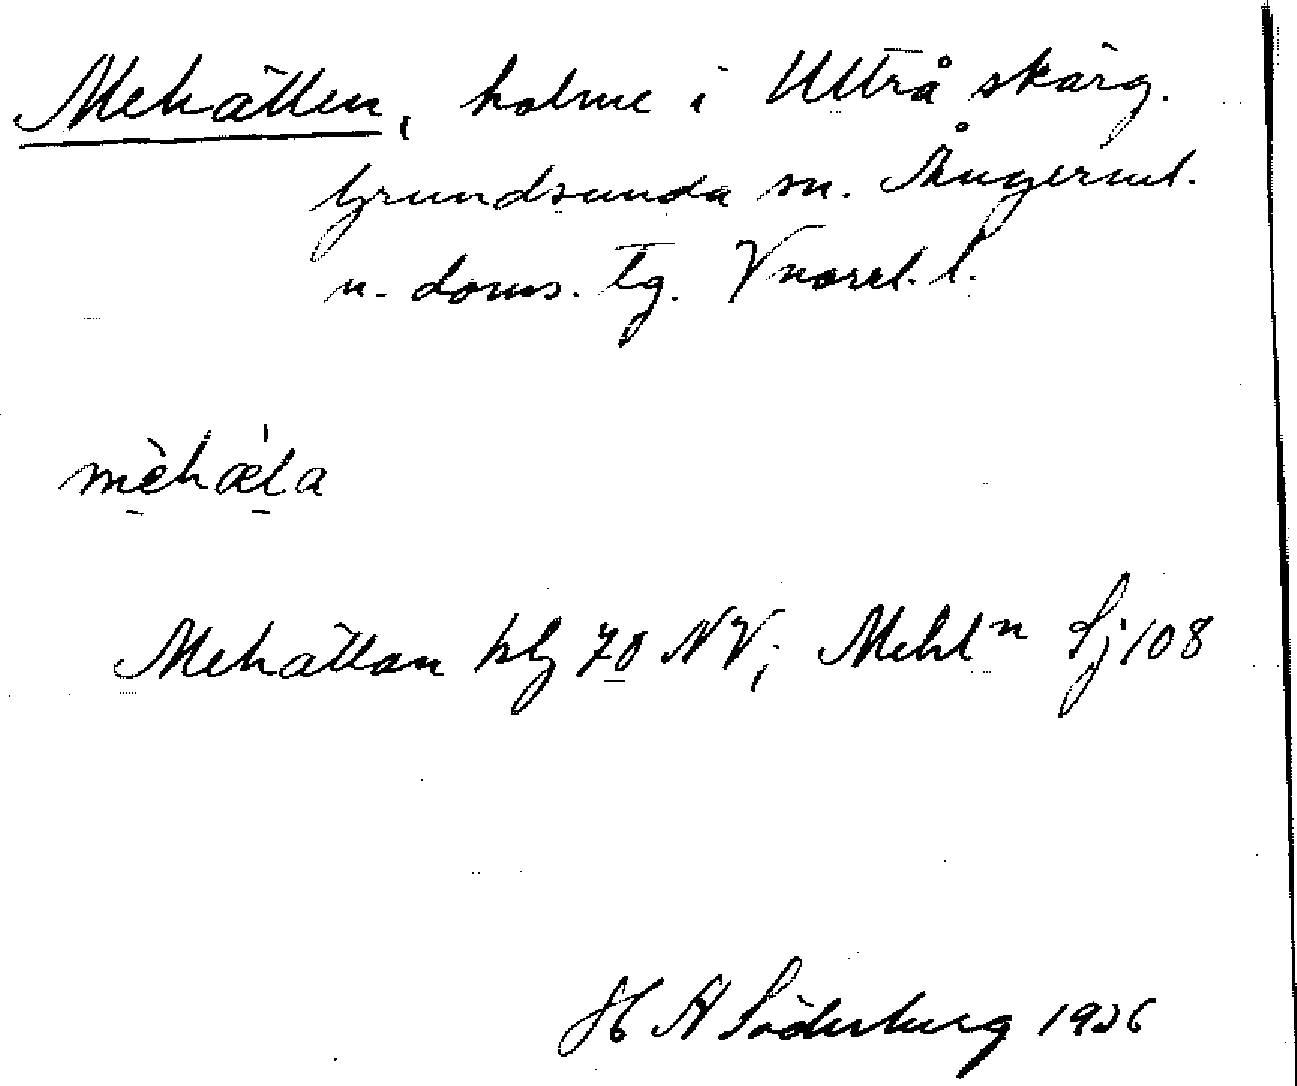 Mehällen, holme i Ulträ skärg.
Grundsunda sn. Ångerml.
n. doms. tg. Vnorrl. l.
mèhæ̀la
Mehällan hlj 70 NV; Mehln Sj 108
H A Söderberg 1926